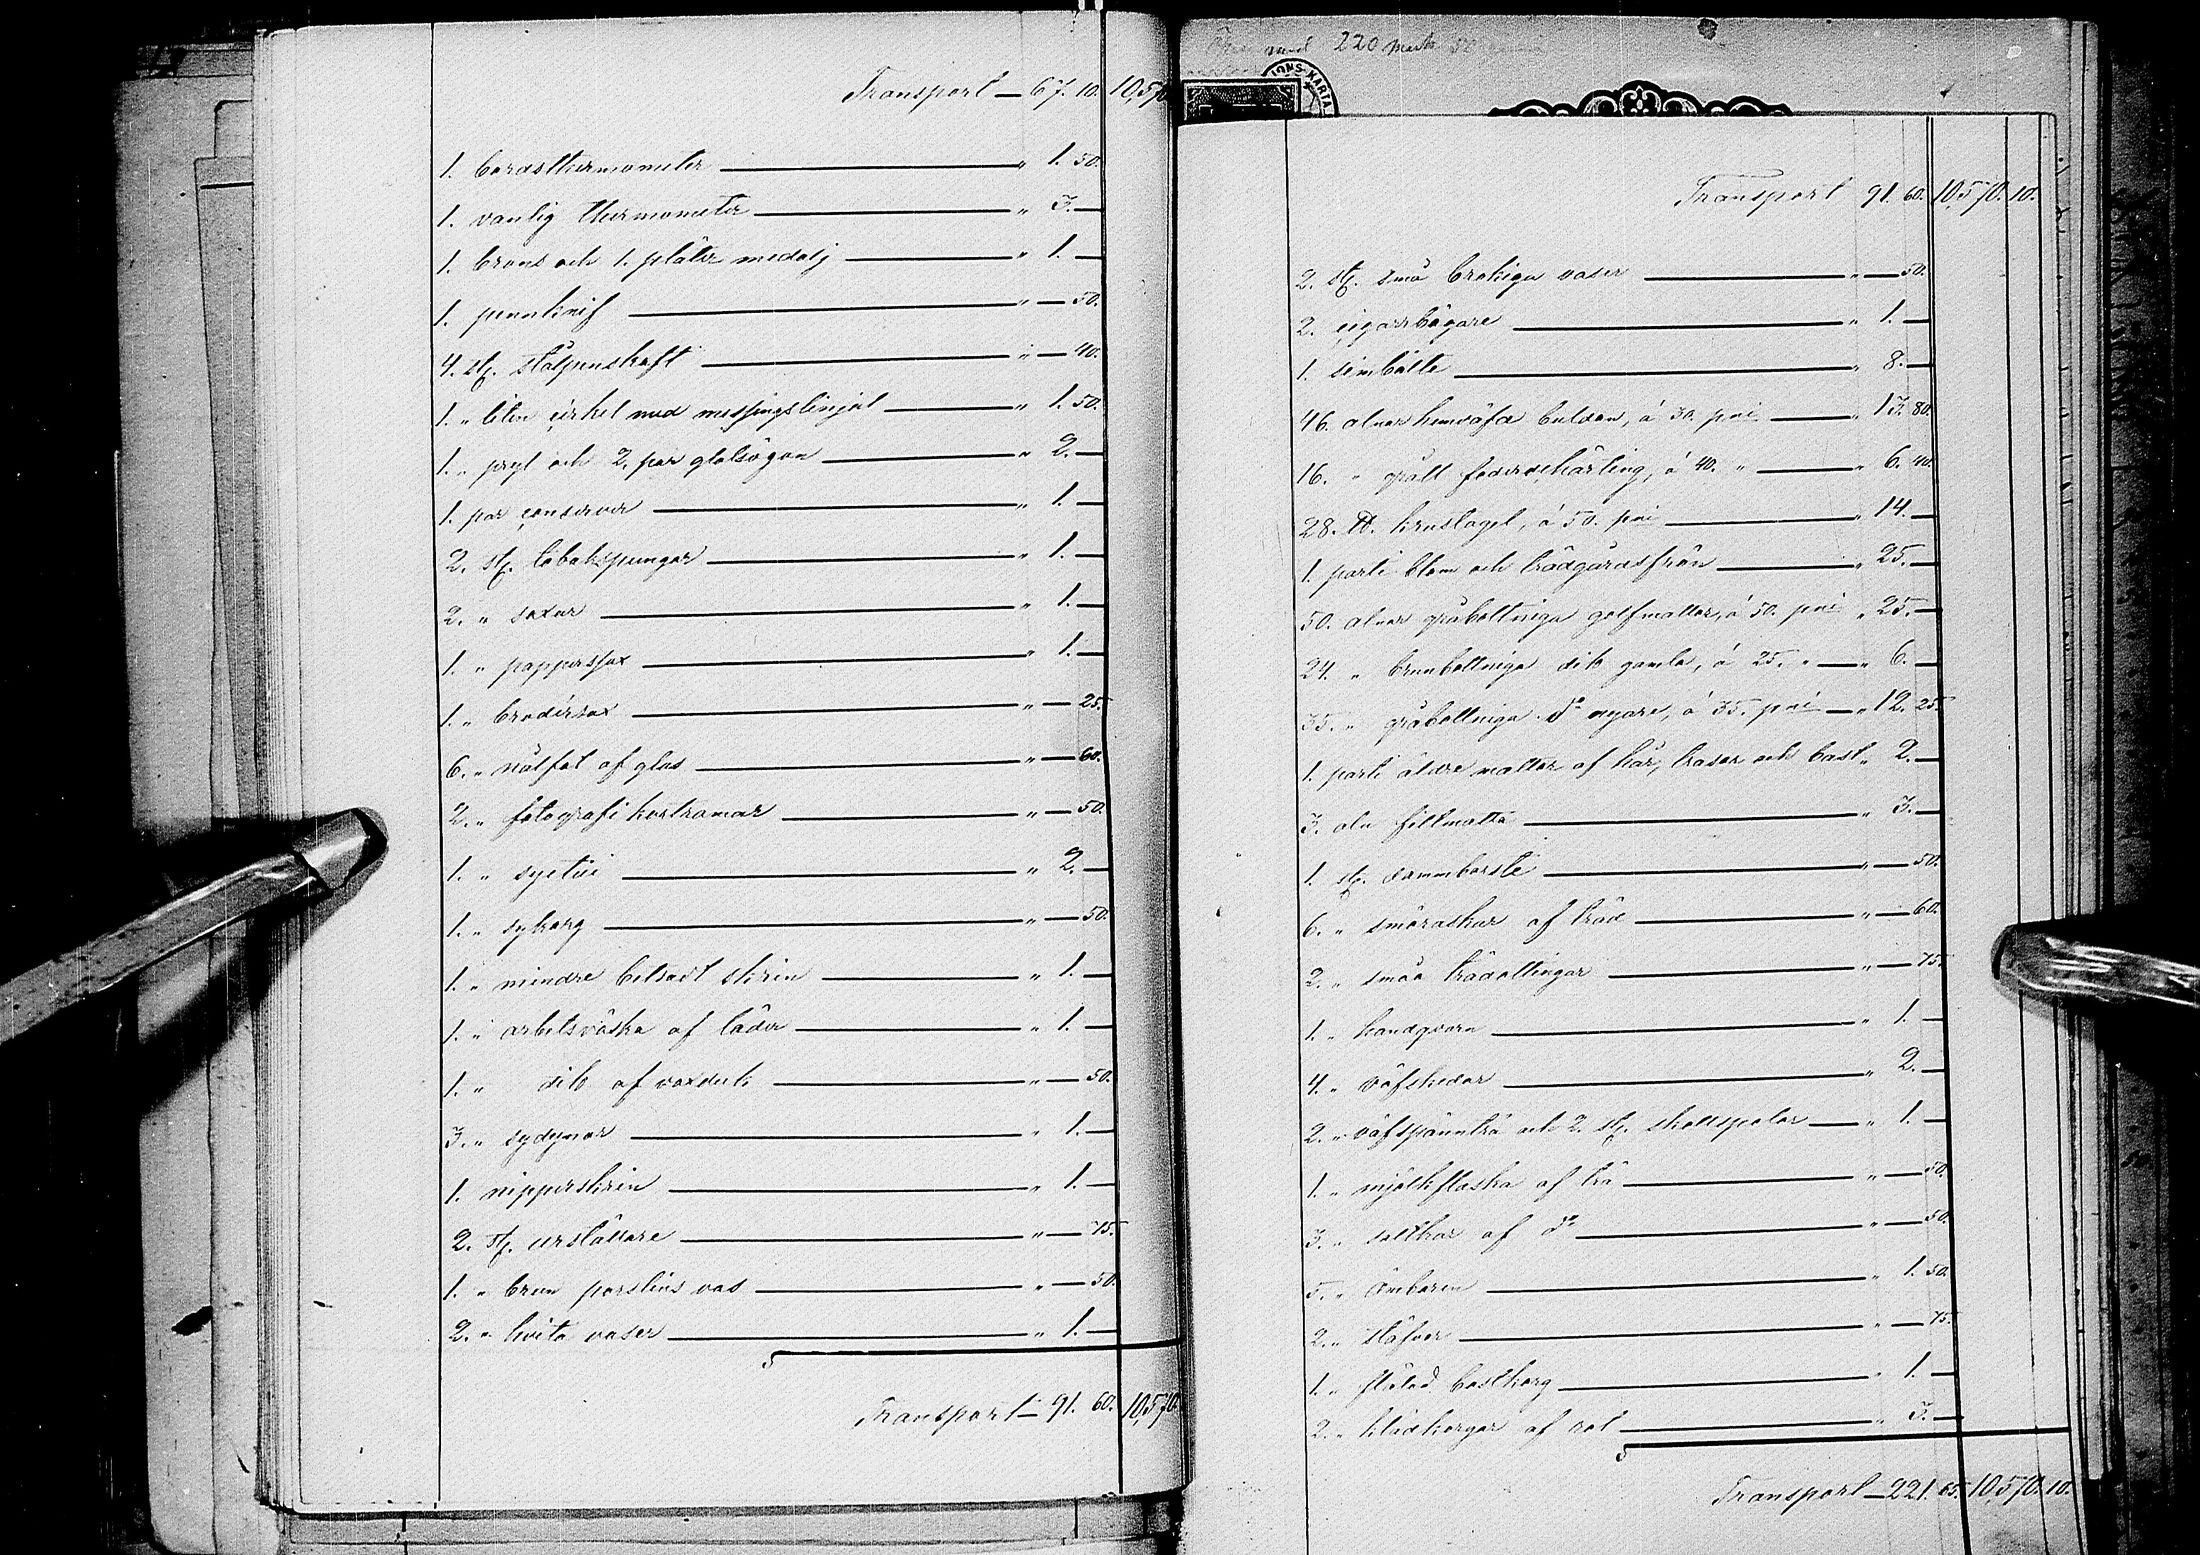 Transport — 67. 10. 10,570
1. bordsthermometer — " 1. 50.
1. vanlig thermometer — " 3. —
1. brons och 1. pläter medalj — " 1. —
1. pennknif — " — 50.
4. st. stålpenskaft — " — 40.
1. " liten cirkel med messingslinjal — " 1. 50.
1. " pryl och 2. par glasögon — " 2. —
1. par conserver — " 1. —
2. st. tobakspungar — " 1. —
2. " saxar — " 1. —
1. " papperssax — " 1. —
1. " brodérsax — " — 25.
6. " nålfat af glas — " — 60.
2. " fotografikortramar — " — 50.
1. " syetui — " 2. —
1. " sykorg — " — 50.
1. " mindre betsadt skrin — " 1. —
1. " arbetsväska af läder — " 1. —
1. " dito af vaxduk — " — 50.
3. " sydynor — " 1. —
1. nipperskrin — " 1. —
2. st. urställare — " — 75.
1. " brun porslins vas — " — 50.
2. " hvita vaser — " 1. —
Transport — 91. 60. 10,570.
med 220 mark 50
IONS-KARTA
Transport 91. 60. 10,570. 10.
2. st. små brokiga vaser — " — 50.
2. cigarrbägare — " 1. —
1. simbälte — " 8. —
46. alnar hemväfd buldan, á 30. pni — " 13. 80.
16. " grått foderschärting, á 40. " — " 6. 40.
28. ℔. krustagel, á 50. pni — " 14. —
1. parti blom och trädgårdsfrön — " 25. —
50. alnar gråbottniga golfmattor, á 50. pni " 25. —
24. " brunbottniga dito gamla, á 25. " — " 6. —
35. " gråbottniga do nyare, á 35. pni — " 12. 25.
1. parti äldre mattor af hår, trasor och bast " 2. —
3. aln filtmatta — " 3. —
1. st. dammborste — " — 50.
6. " smöraskar af träd — " — 60.
2. " små trädottingar — " — 75.
1. " handqvarn — " 1. —
4. " väfskedar — " 2. —
2. " väfspännträ och 2. st. skottspolar — " 1. —
1. " mjölkflaska af trä — " — 50.
3. " saltkar af do — " — 50.
5. " ämbaren — " 1. 50.
2. " stäfvor — " — 75.
1. " flätad bastkorg — " 1. —
2. " klädkorgar af rot — " 3. —
Transport — 221. 65. 10,570. 10.